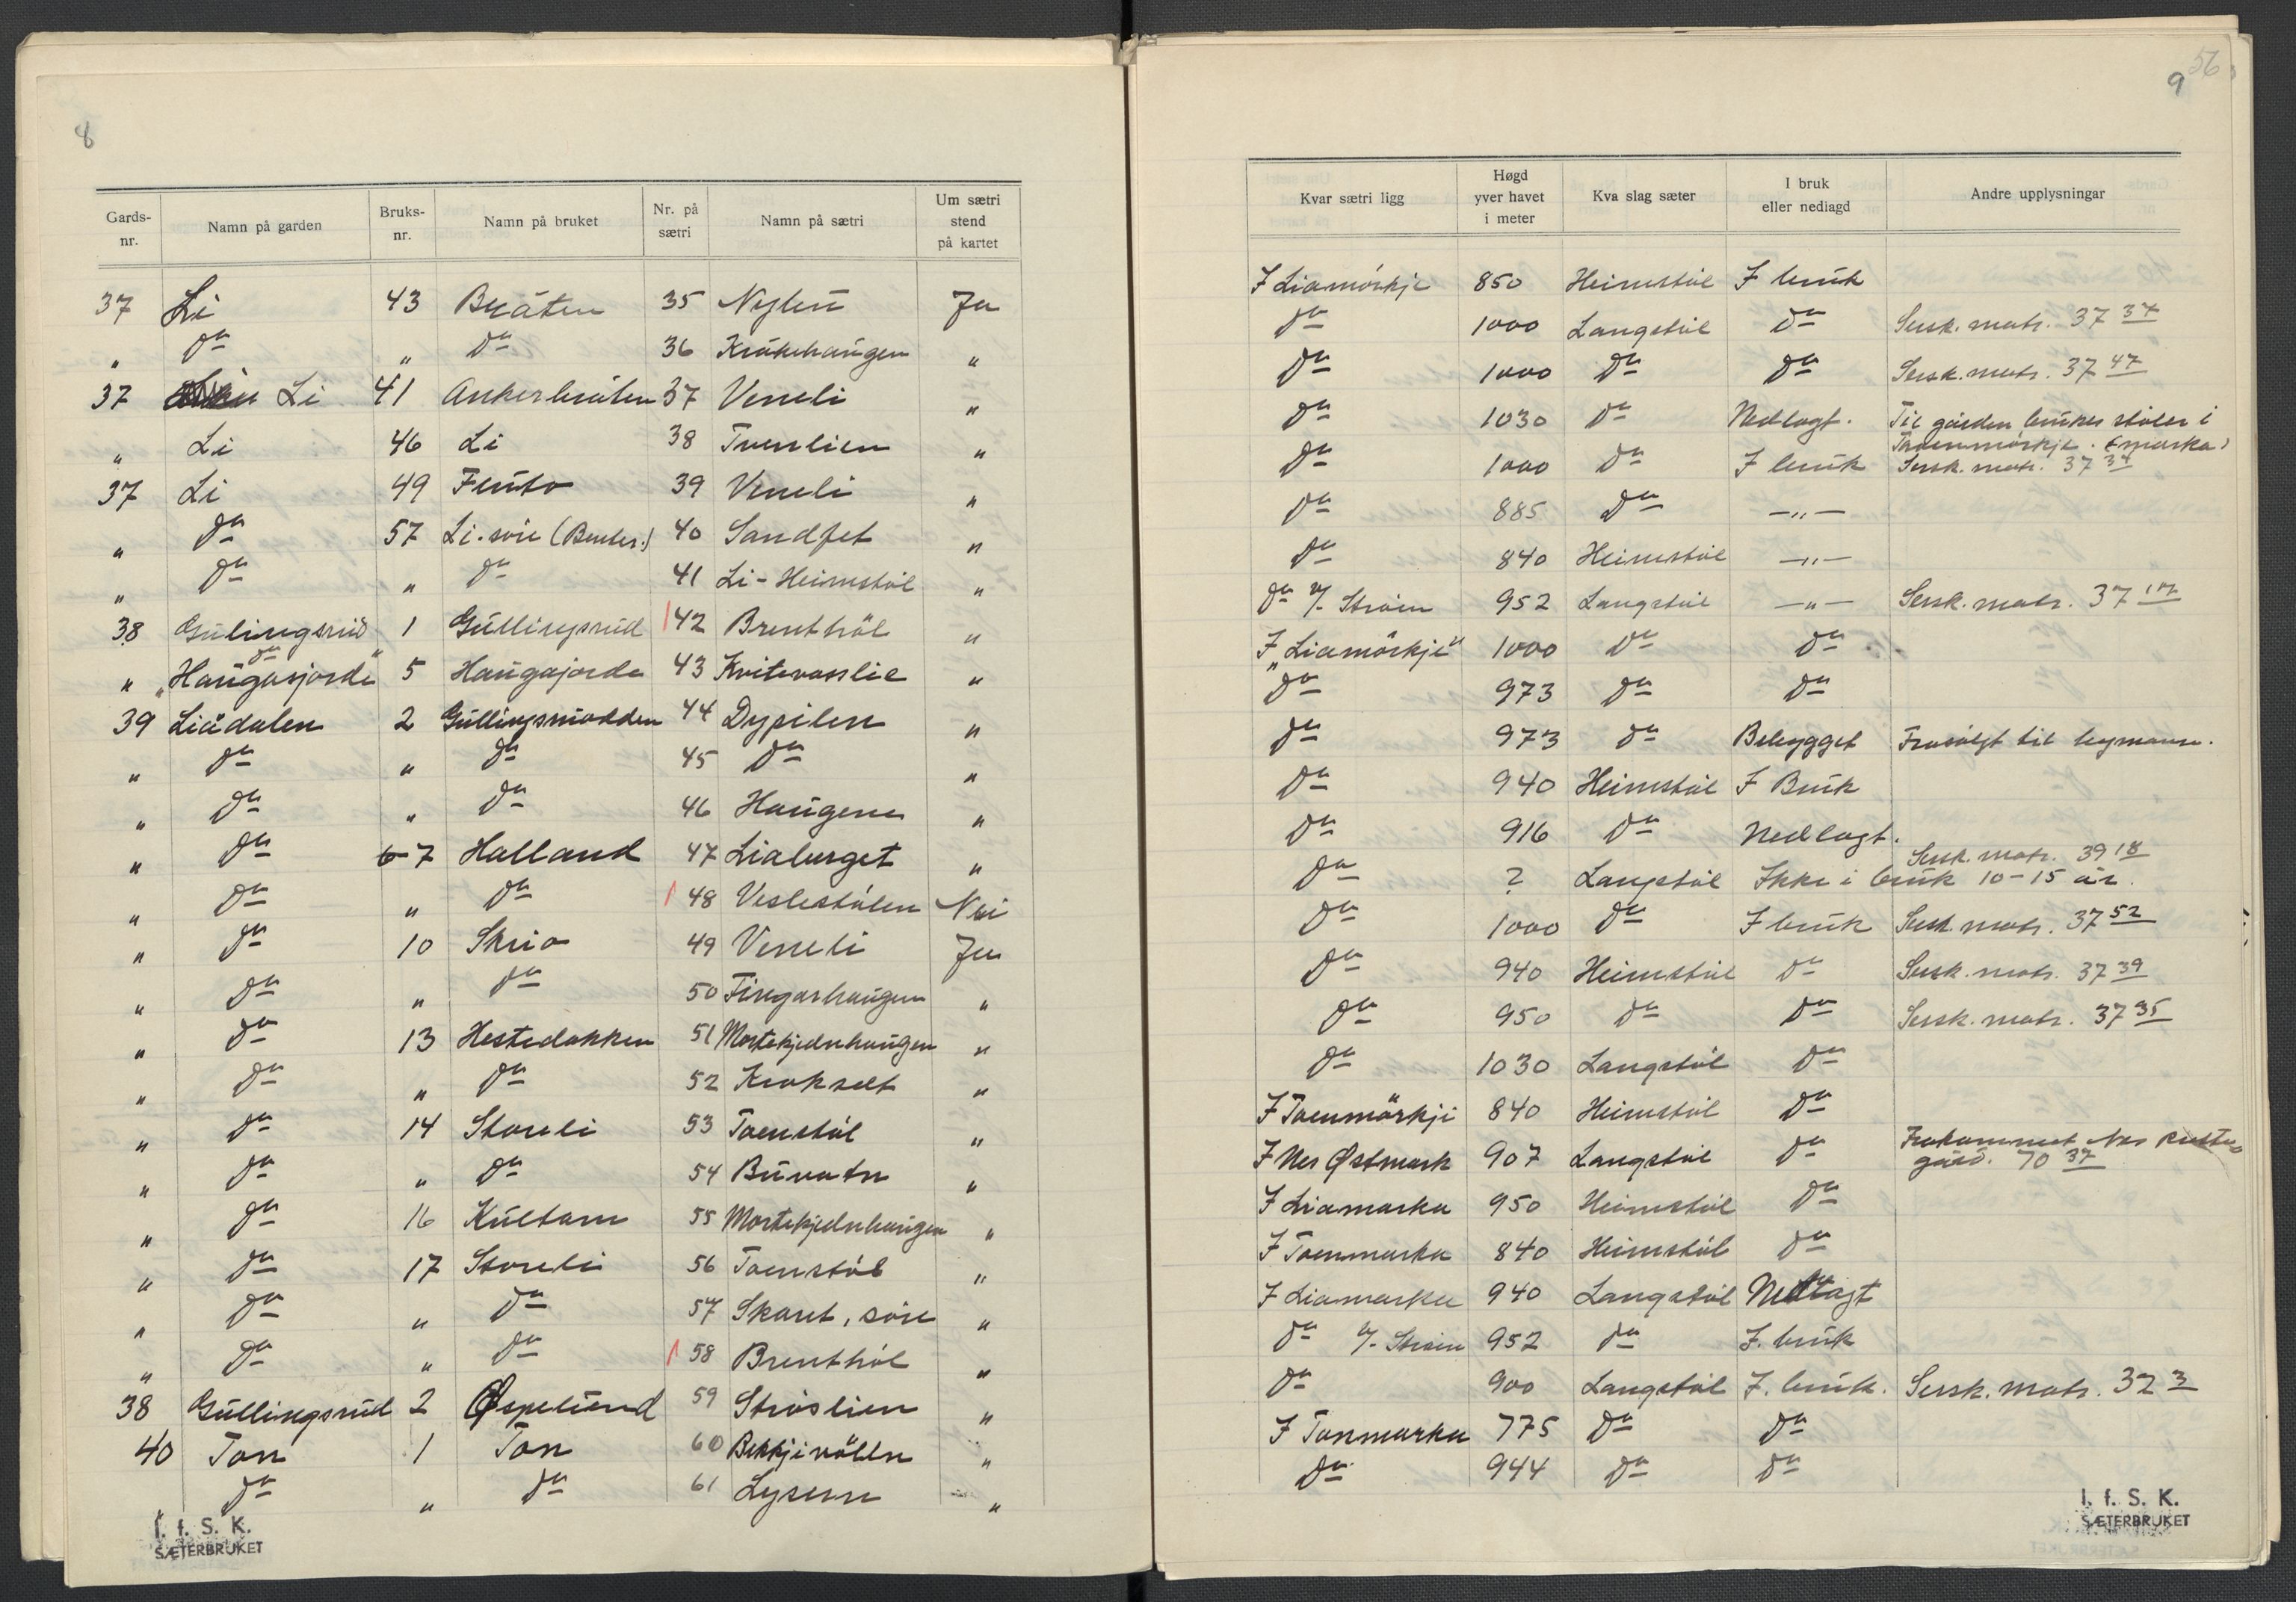 8
Gards-nr. | Namn på garden | Bruks-nr. | Namn på bruket | Nr. på sætri | Namn på sætri | Um sætri stend på kartet
37 Li 43 Bråten 35 Nylen Ja
" Do " Do 36 Kråkehaugen "
37 Li 41 Ankerbråten 37 Veneli "
" Li 46 Li 38 Tvenlien "
37 Li 49 Fruto 39 Veneli "
" Do 57 Li-søre 40 Sandfet "
" Do " Do 41 Li-Heimstøl "
38 Gulingsrud 1 Gullingsrud 42 Brenthøl "
" "Haugasjorde" Do 5 Haugajorde 43 Kvitevasslie "
39 Liådalen 2 Gullingsmodden 44 Dypilen "
" Do " Do 45 Do "
" Do " Do 46 Haugen "
" Do 6-7 Halland 47 Liaberget "
" Do " Do 48 Veslestølen Nei
" Do 10 Skrio 49 Veneli Ja
" Do " Do 50 "
" Do 13 Hestedokken 51 Mortekjednhaugen "
" Do " Do 52 Krokselt "
" Do 14 Storeli 53 Toenstøl "
" Do " Do 54 Buvatn "
" Do 16 Kultom 55 Mortekjednhaugen "
" Do 17 Storeli 56 Toenstøl "
" Do " Do 57 Skaret, søre "
" Do " Do 58 Brenthøl "
38 Gullingsrud 2 Øspelund 59 Strøslien "
40 Ton 1 Ton 60 Bekkjivølln "
Do " Do 61 Lysern "
I. f. S. K.
SÆTERBRUKET
56
9
Kvar sætri ligg | Høgd yver havet i meter | Kva slag sæter | I bruk eller nedlagd | Andre upplysningar
I Liamørkje 850 Heimstøl I bruk
Do 1000 Langstøl Do Sersk. matr. 37 34
Do 1000 Do Do Sersk. matr. 37 47
Do 1030 Do Nedlagt. Til gården brukes støler i
Toenmørkje. (marka)
Do 1000 Do I bruk Sersk. matr. 37 34
Do 885 Do —"—
Do 840 Heimstøl —"—
Do v/- Strøen 952 Langstøl —"— Sersk. matr. 37 17
I "Liamørkje" 1000 Do Do
Do 973 Do Do
Do 973 Do Bebygget Frasolgt til bymann.
Do 940 Heimstøl I Bruk
Do 916 Do Nedlagt.
Sersk. matr. 39 18
Do ? Langstøl Ikke i bruk 10-15 år.
Do 1000 Do I bruk Sersk. matr. 37 52
Do 940 Heimstøl Do Sersk. matr. 37 39
Do 950 Do Do Sersk. matr. 37 35
Do 1030 Langstøl Do
I Toenmørkji 840 Heimstøl Do
I Nes Østmark 907 Langstøl Do Frakommet Nes
gård. 70 37
I Liamarka 950 Heimstøl Do
I Toenmarka 840 Heimstøl Do
I Liamarka 940 Langstøl Nedlagt
Do v/- Strøen 952 Do I. bruk
Do 900 Langstøl I. bruk. Sersk. matr. 32 3
I Tonmarka 775 Do Do
Do 944 Do Do
I. f. S. K.
SÆTERBRUKET